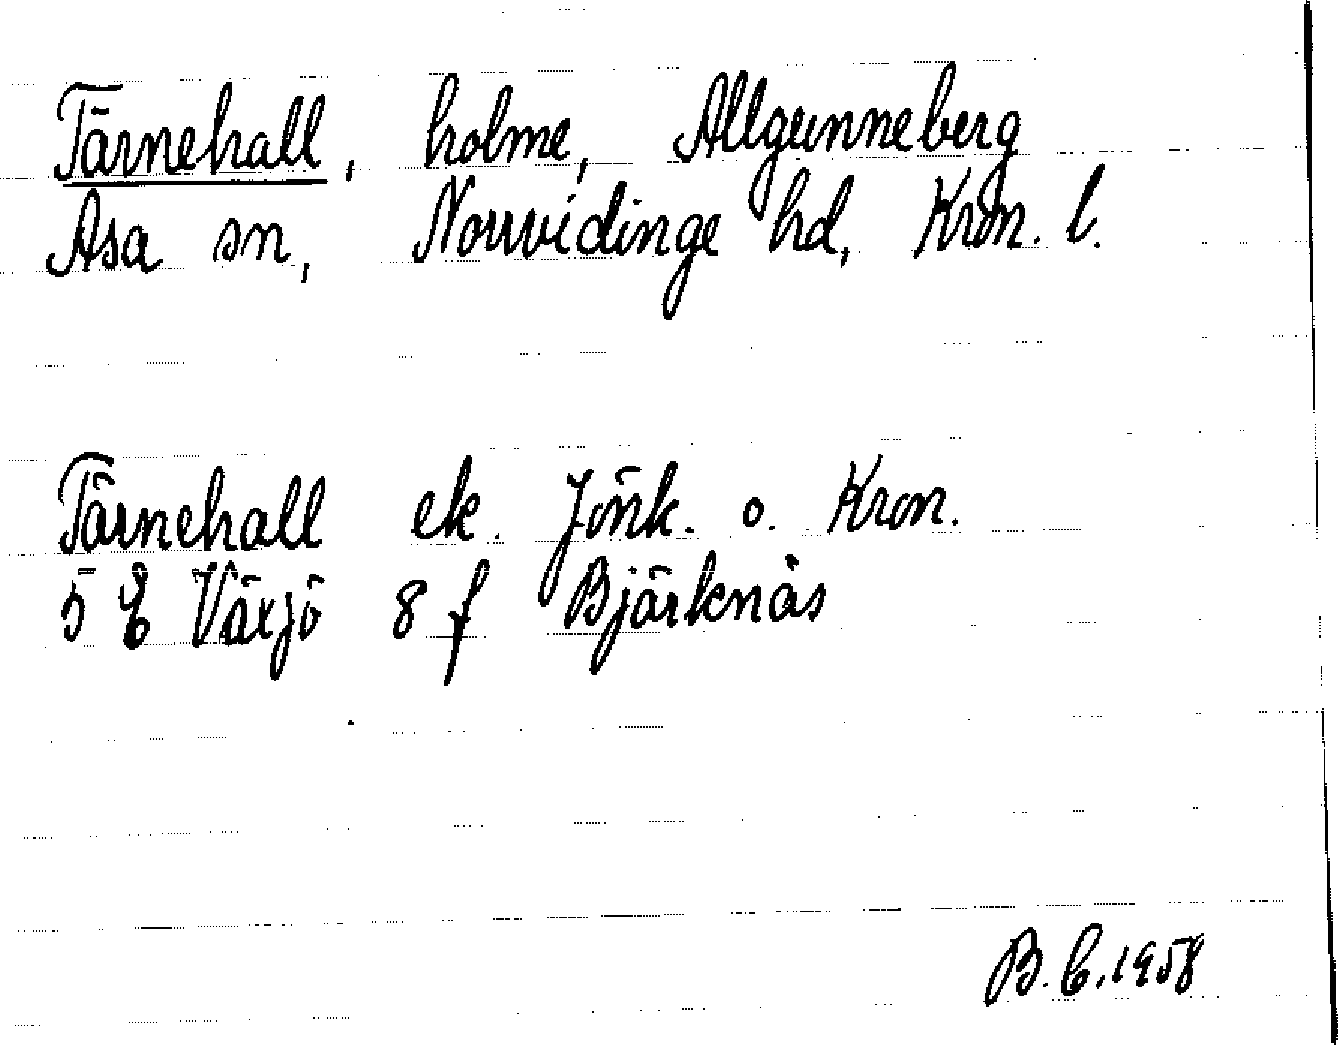 Tärnehall, holme, Allgunneberg
Asa sn, Norrvidinge hd, Kron. l.
Tärnehall ek. Jönk. o. Kron.
5 E Växjö 8 f Bjärknäs
B.C. 1958